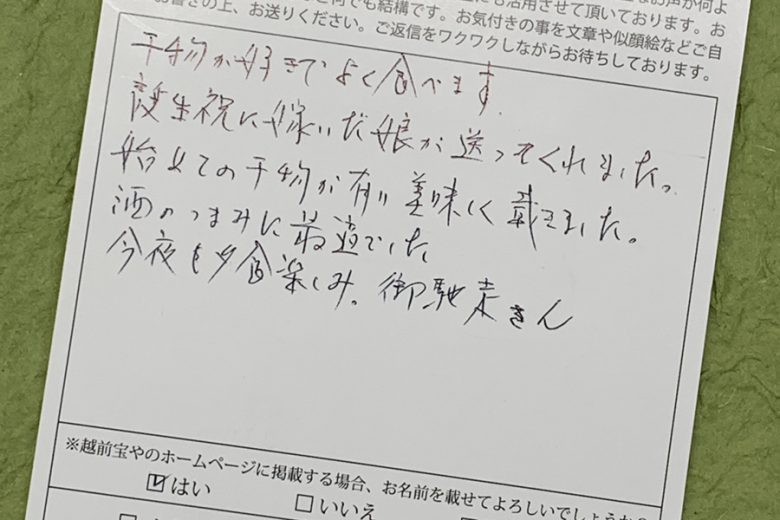 お声が何よ
にも活用させて頂いております。お
何でも結構です。お気付きの事を文章や似顔絵などご自
お書きの上、お送りください。ご返信をワクワクしながらお待ちしております。
干物が好きでよく食べます。
誕生祝に嫁いだ娘が送ってくれました。
始めての干物が有り美味しく戴きました。
酒のつまみに最適でした
今夜も夕食楽しみ。御馳走さん
※越前宝やのホームページに掲載する場合、お名前を載せてよろしいでしょうか
はい
いいえ